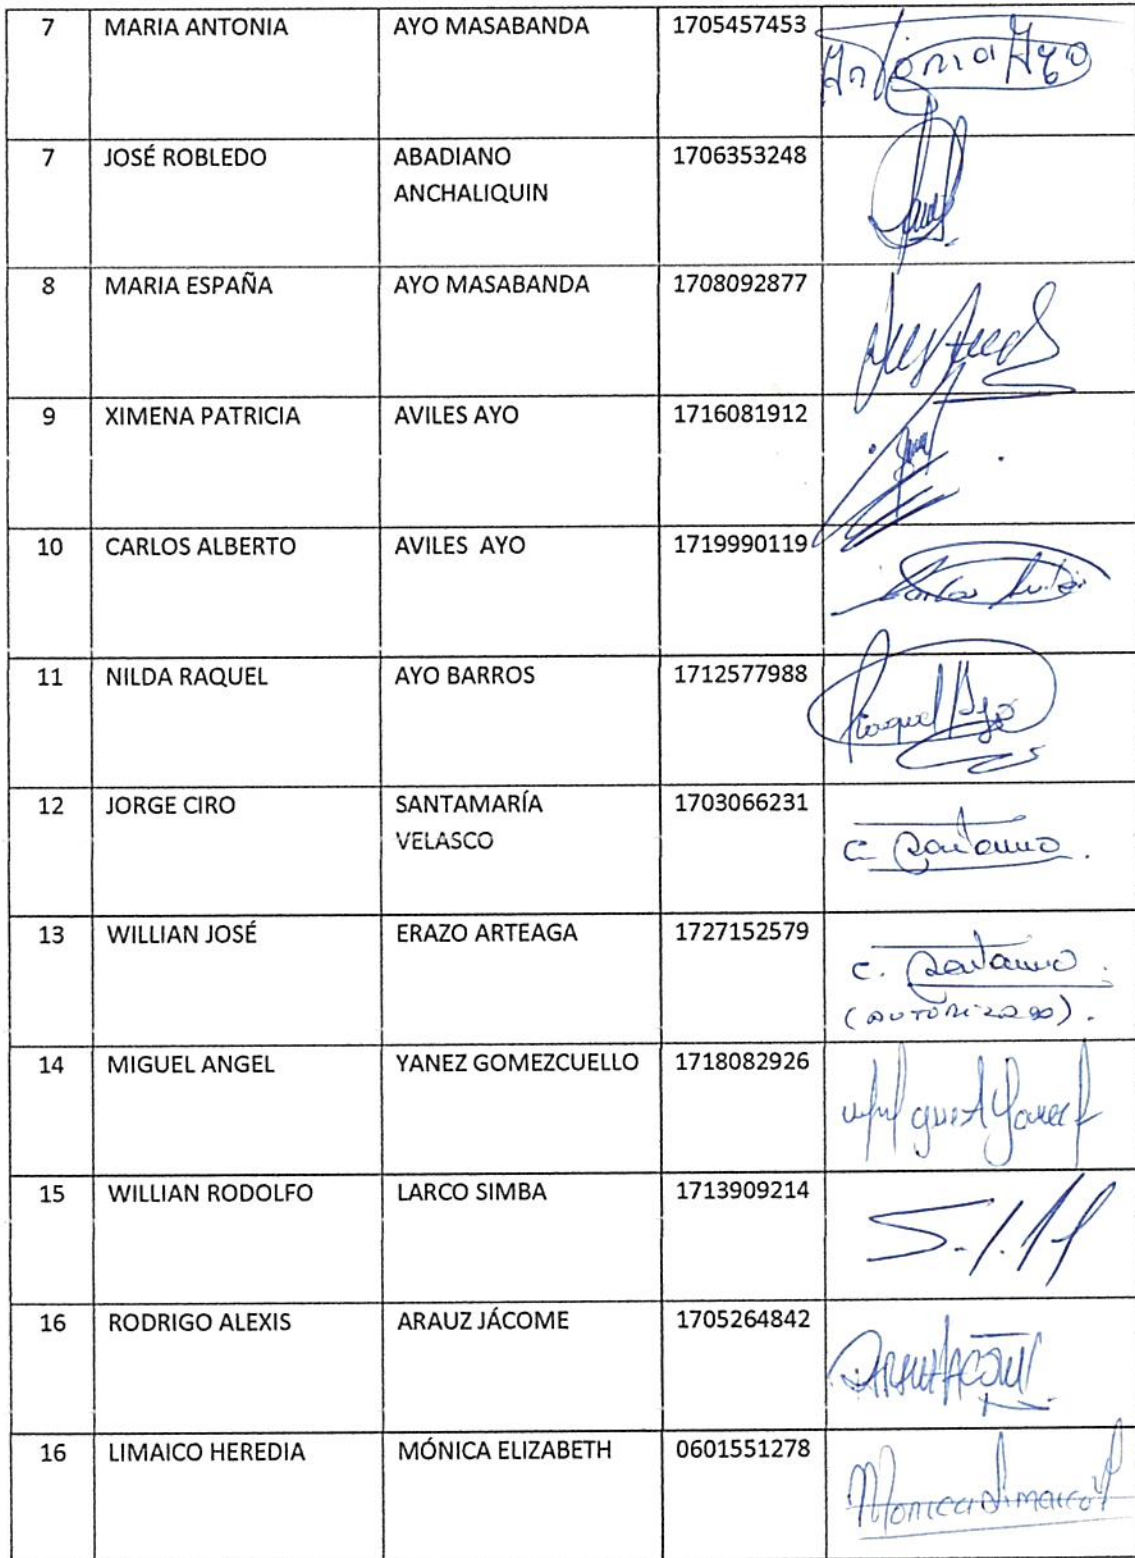 7 MARIA ANTONIA AYO MASABANDA 1705457453 Antonia Ayo
7 JOSÉ ROBLEDO ABADIANO 1706353248
ANCHALIQUIN
8 MARIA ESPAÑA AYO MASABANDA 1708092877
9 XIMENA PATRICIA AVILES AYO 1716081912
10 CARLOS ALBERTO AVILES AYO 1719990119
11 NILDA RAQUEL AYO BARROS 1712577988 Raquel Ayo
12 JORGE CIRO SANTAMARÍA 1703066231
VELASCO
13 WILLIAN JOSÉ ERAZO ARTEAGA 1727152579
(AUTORIZADO).
14 MIGUEL ANGEL YANEZ GOMEZCUELLO 1718082926
15 WILLIAN RODOLFO LARCO SIMBA 1713909214
16 RODRIGO ALEXIS ARAUZ JÁCOME 1705264842
16 LIMAICO HEREDIA MÓNICA ELIZABETH 0601551278
Monica Limaico